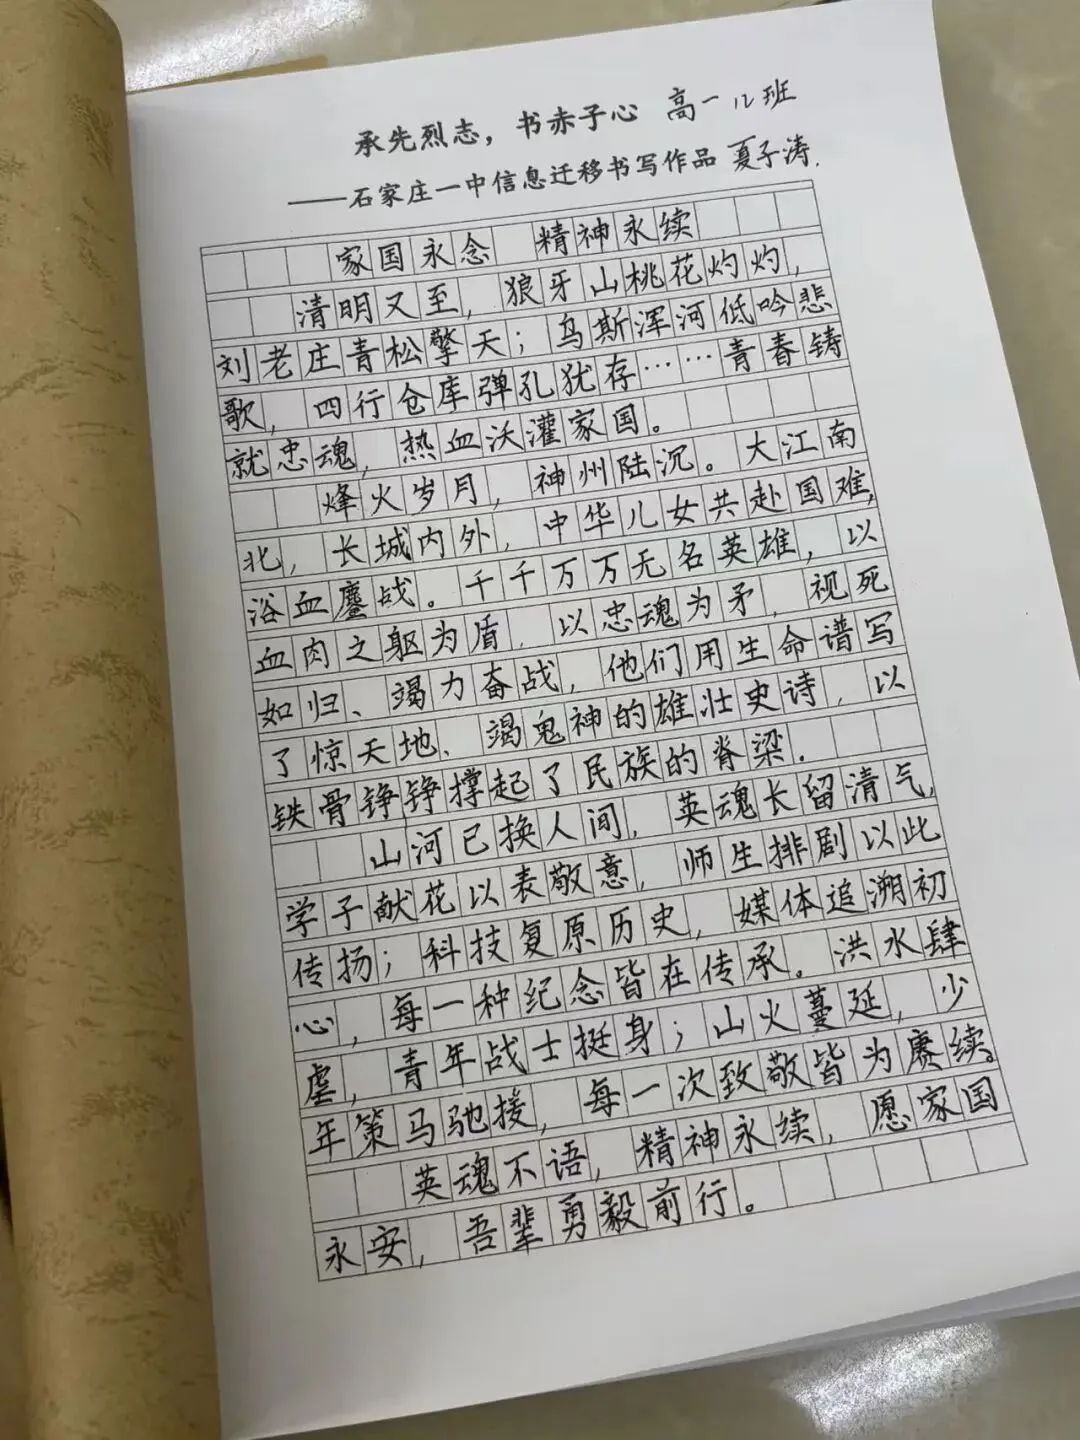 承先烈志，书赤子心 高一12班
——石家庄一中信息迁移书写作品 夏子涛.
家国永念 精神永续
清明又至，狼牙山桃花灼灼，
刘老庄青松擎天；乌斯浑河低吟悲
歌，四行仓库弹孔犹存……青春铸
就忠魂，热血沃灌家国。
烽火岁月，神州陆沉。大江南
北，长城内外，中华儿女共赴国难，
浴血鏖战。千千万万无名英雄，以
血肉之躯为盾，以忠魂为矛，视死
如归、竭力奋战，他们用生命谱写
了惊天地、竭鬼神的雄壮史诗，以
铁骨铮铮撑起了民族的脊梁.
山河已换人间，英魂长留清气，
学子献花以表敬意，师生排剧以此
传扬；科技复原历史，媒体追溯初
心，每一种纪念皆在传承。洪水肆
虐，青年战士挺身；山火蔓延，少
年策马驰援，每一次致敬皆为赓续。
英魂不语，精神永续，愿家国
永安，吾辈勇毅前行。